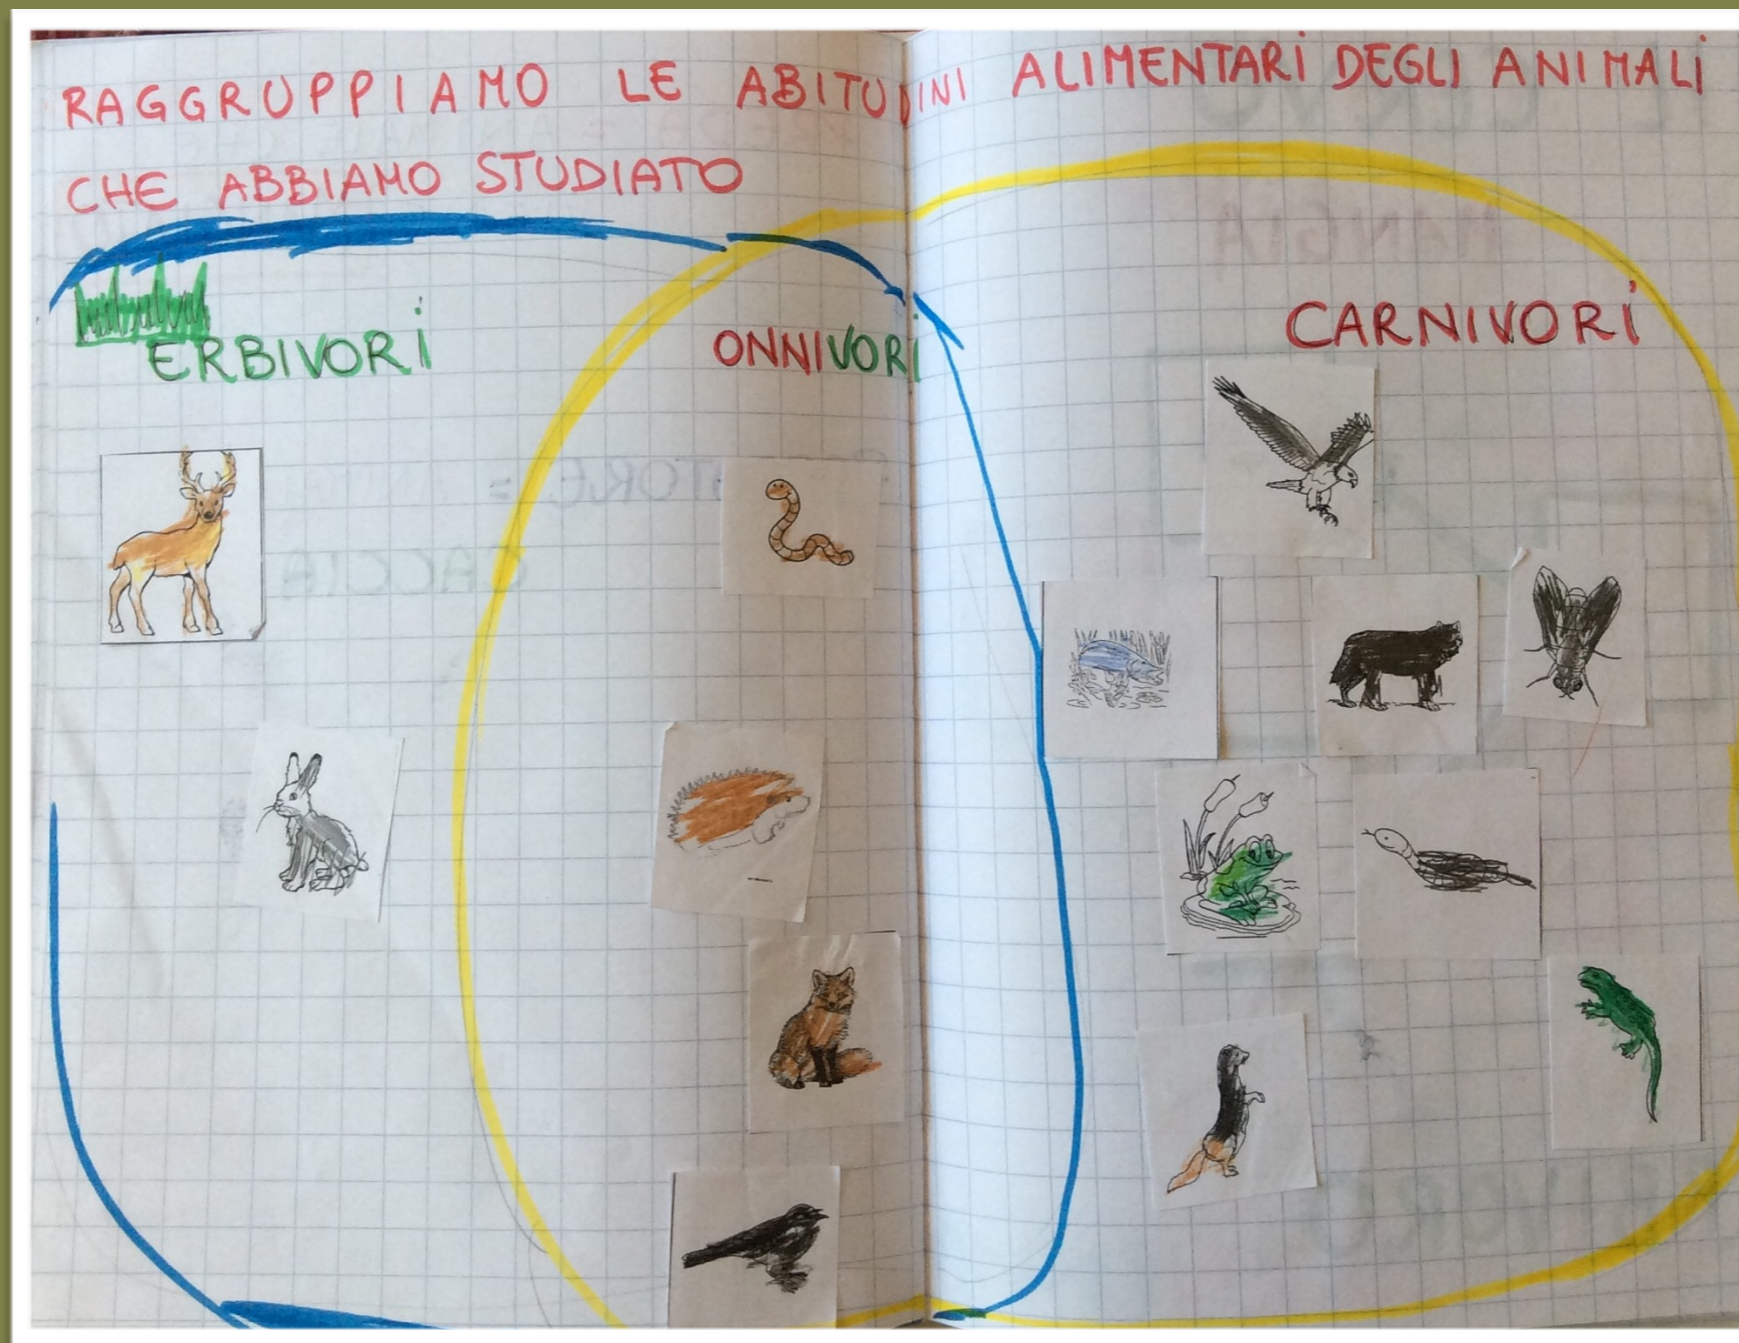 RAGGRUPPIAMO LE ABITUDINI ALIMENTARI DEGLI ANIMALI
CHE ABBIAMO STUDIATO
ERBIVORI
ONNIVORI
CARNIVORI
MANGIA
CACCIA